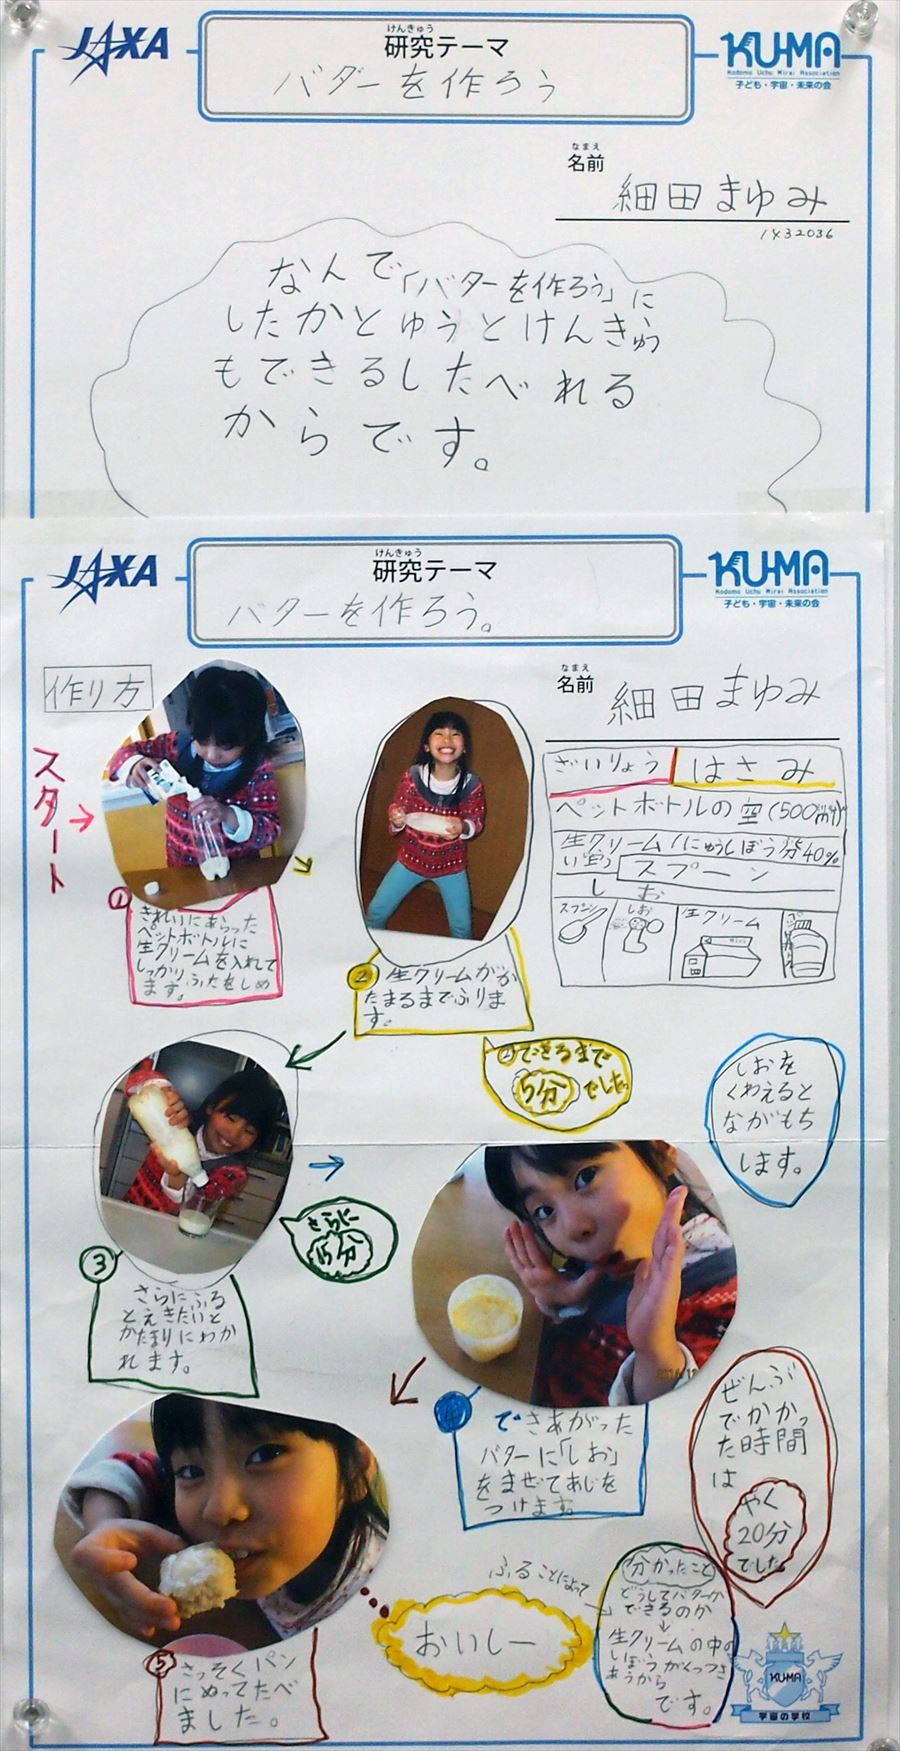 JAXA
けんきゅう
研究テーマ
バターを作ろう
KU-MA
Kodomo Uchu Mirai Association
子ども・宇宙・未来の会
なまえ
名前
細田まゆみ
1432036
なんで「バターを作ろう」に
したかとゆうとけんきゅう
もできるしたべれる
からです。
JAXA
けんきゅう
研究テーマ
バターを作ろう。
KU-MA
Kodomo Uchu Mirai Association
子ども・宇宙・未来の会
なまえ
名前
細田まゆみ
作り方
スタート
ざいりょう
はさみ
ペットボトルの空(500
生クリーム(にゅうしぼう分40%
スプーン
しお
スプーン
しお
生クリーム
①
きれいにあらった
ペットボトルに
生クリームを入れて
しっかりふたをしめ
ます。
②
生クリームがか
たまるまでふりま
す。
②できるまで
5分でした。
しおを
くわえると
ながもち
します。
③
さらにふる
とえきたいと
かたまりにわか
れます。
さらに
15分
④
できあがった
バターに「しお」
をまぜてあじを
つけます。
ぜんぶ
でかかっ
た時間
は
やく
20分
でした
⑤
さっそくパン
にぬってたべ
ました。
おいしー
ふることによって
分かったこと
どうしてバターが
できるのか
生クリームの中の
しぼうがくっつき
あうから
です。
KU-MA
宇宙の学校